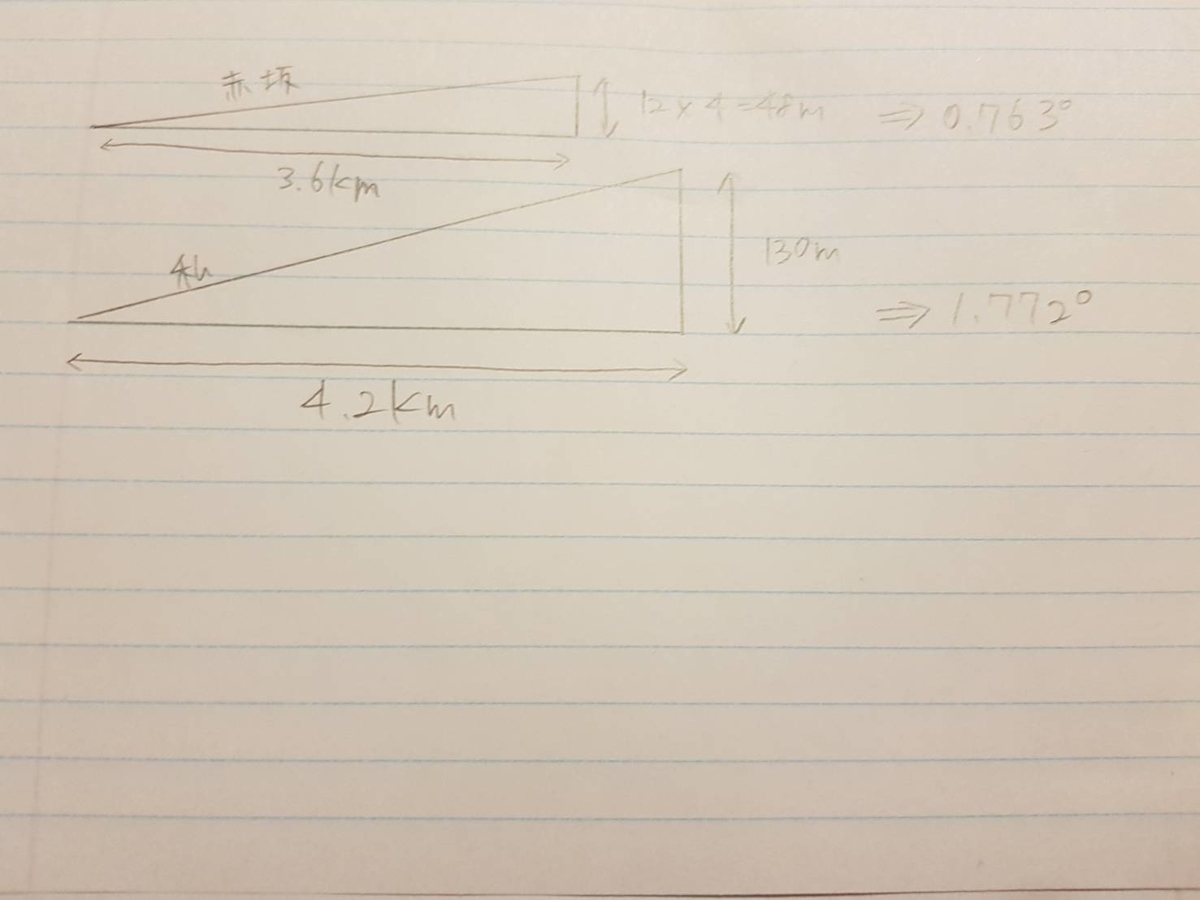 赤坂
12×4=48m ⇒ 0.763°
3.6km
130m
⇒ 1.772°
4.2km